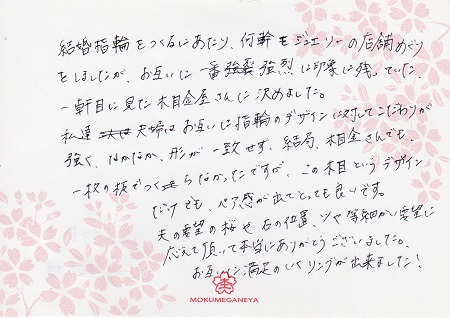 結婚指輪をつくるにあたり、何軒もジュエリーの店舗めぐり
をしましたが、お互いに一番強烈に印象に残っていた、
一軒目に見た杢目金屋さんに決めました。
私達夫婦はお互いに指輪のデザインに対してこだわりが
強く、なかなか、形が一致せず、結局、相金さんでも、
一枚の板でつくらなかったですが、この木目というデザイン
だけでも、ペア感が出てとっても良いです。
夫の要望の桜や石の位置、ツヤ等細かい要望に
応えて頂いて本当にありがとうございました。
お互いに満足のいくリングが出来ました！
MOKUMEGANEYA